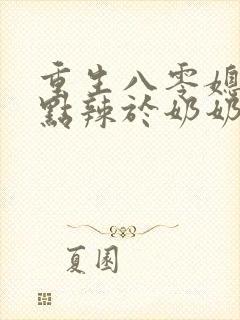 重生八零媳
點辣於奶奶
夏園